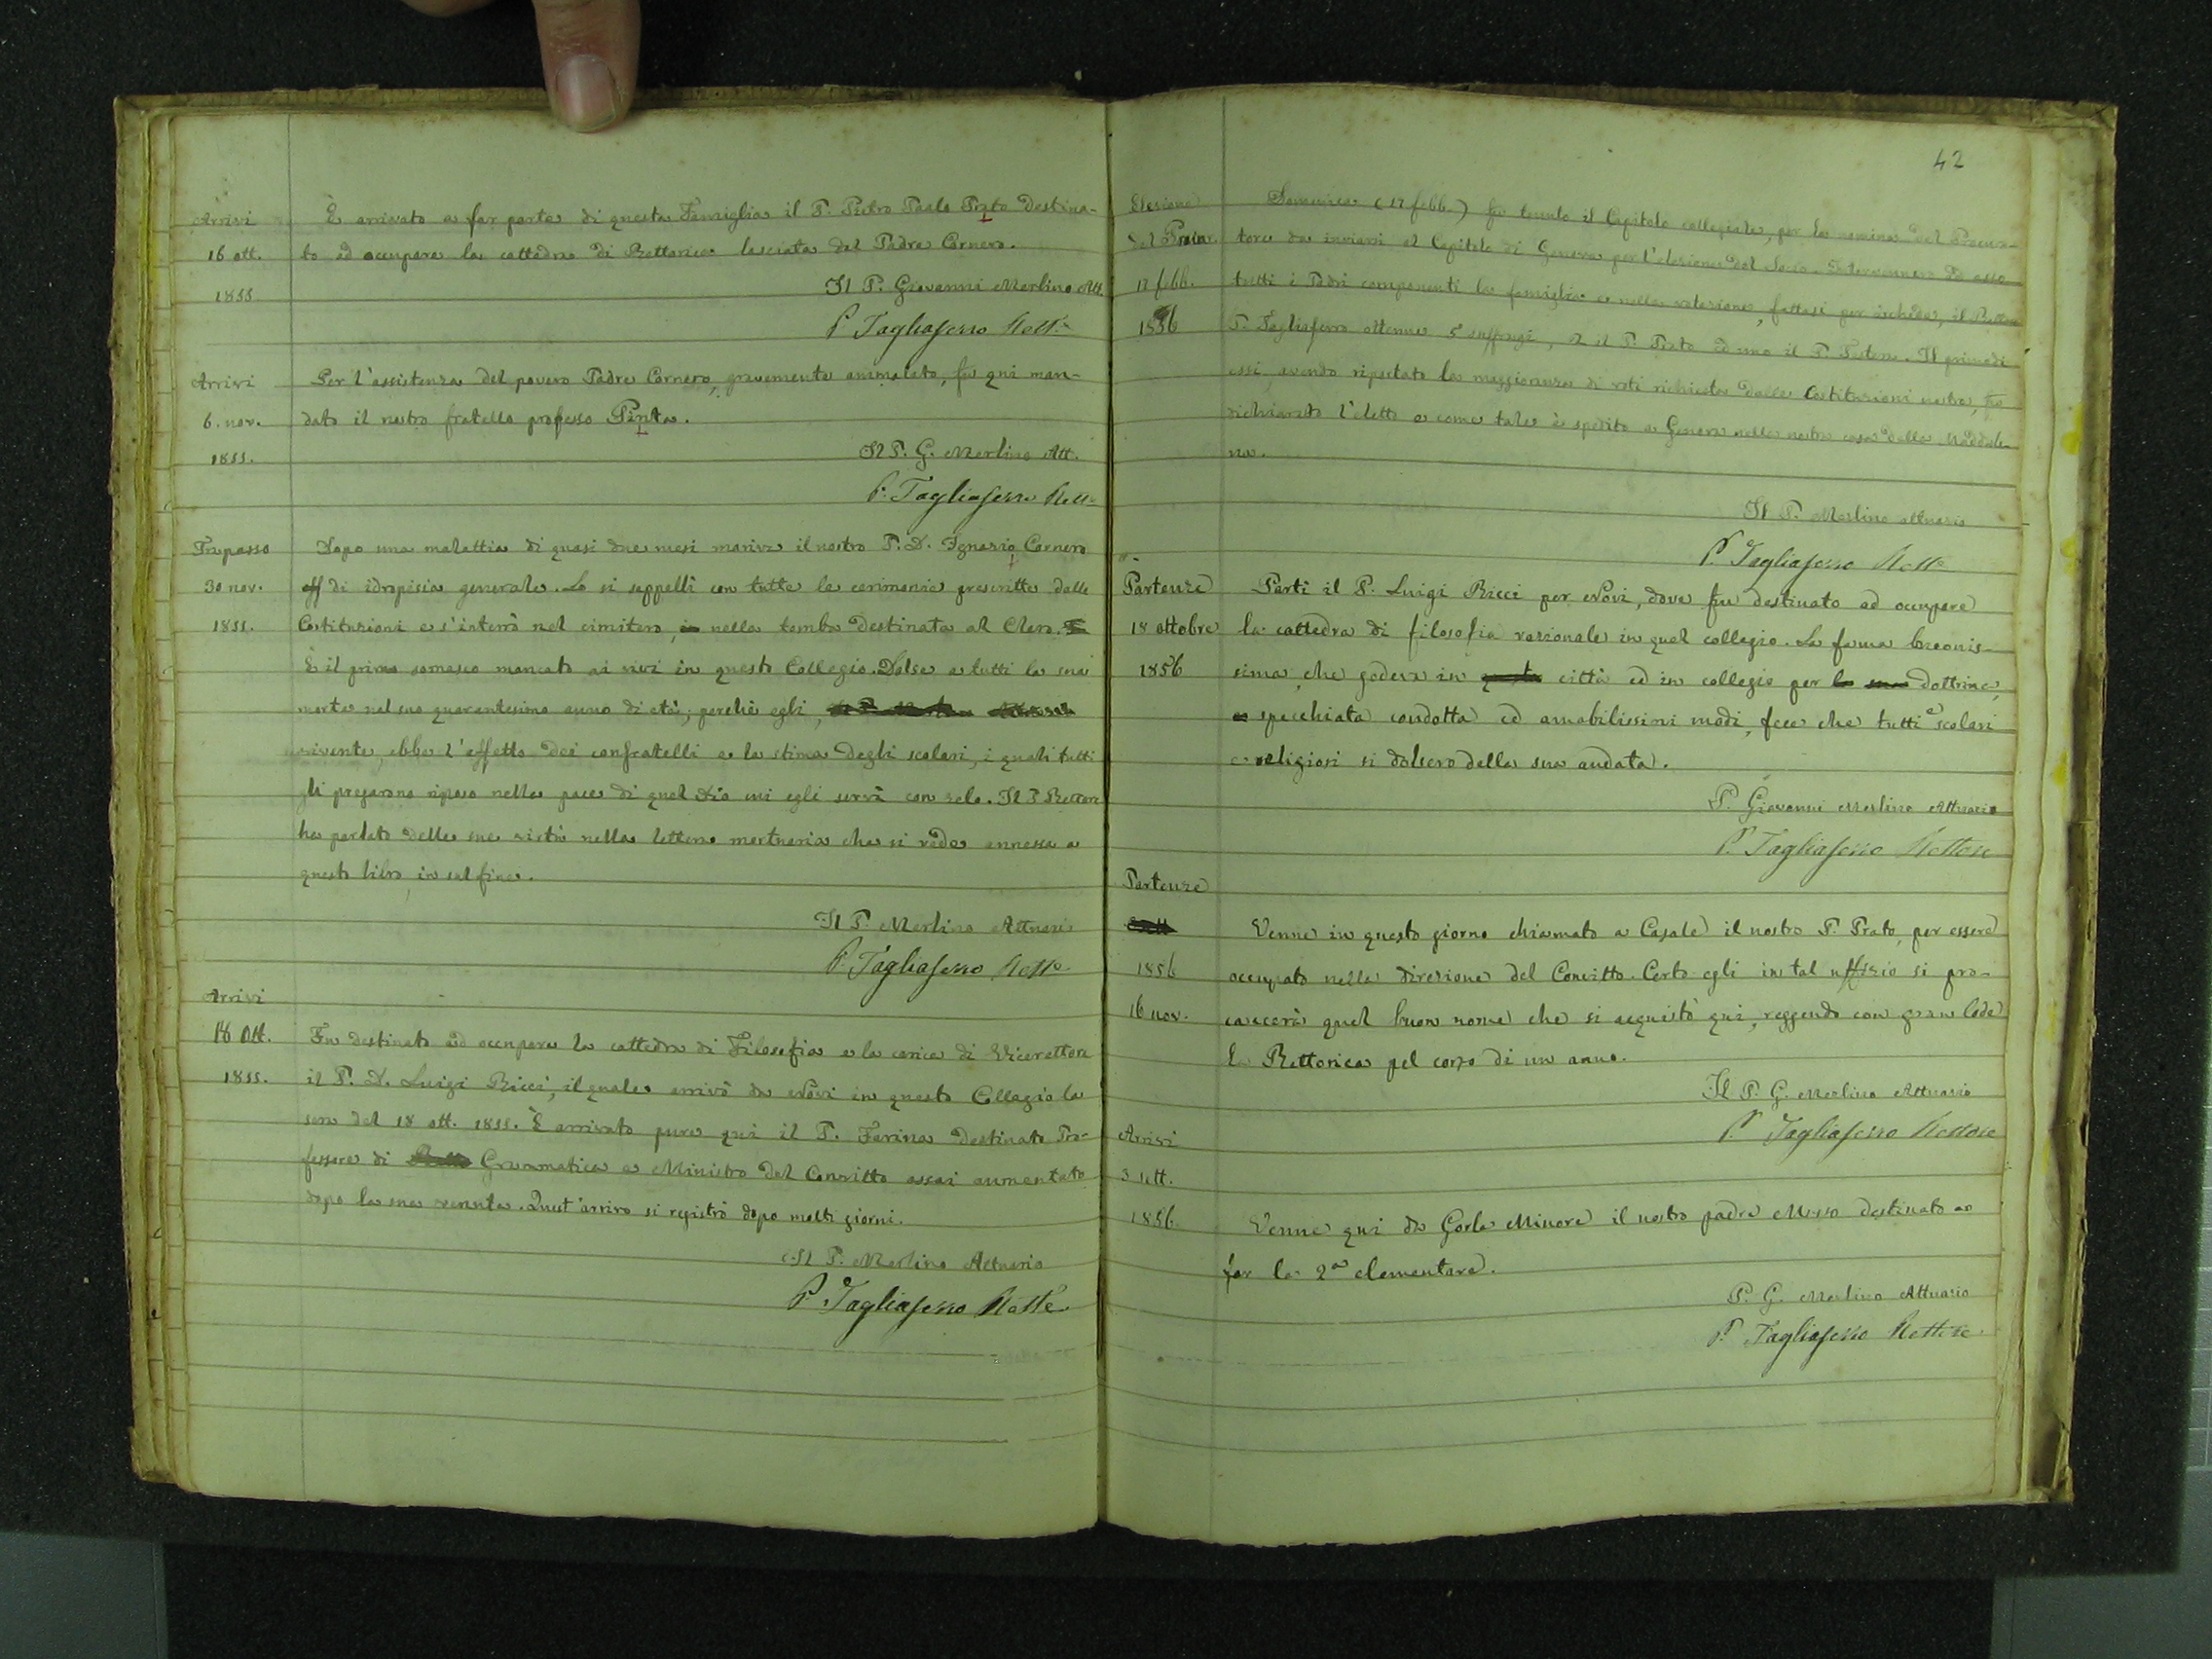 Arrivi
16 ott.
1855
È arrivato a far parte di questa Famiglia il P. Pietro Paolo Prato destina-
to ad occupare la cattedra di Rettorica lasciata dal Padre Cornero.
Il P. Giovanni Merlino Att.
P. Tagliaferro Rett.e
Arrivi
6. nov.
1855.
Per l'assistenza del povero Padre Cornero, gravemente ammalato, fu qui man-
dato il nostro fratello professo Pinta.
Il P. G. Merlino Att.
P. Tagliaferro Rett.e
Trapasso
30 nov.
1855.
Dopo una malattia di quasi due mesi moriva il nostro P. D. Ignazio Cornero
di idropisia generale. Lo si seppellì con tutte le cerimonie prescritte dalle
Costituzioni e s'interrò nel cimitero, nella tomba destinata al Clero.
È il primo somasco mancato ai vivi in questo Collegio. Dolse a tutti la sua
morte nel suo quarantesimo anno di età, perchè egli,
vivente, ebbe l'affetto dei confratelli e la stima degli scolari, i quali tutti
gli pregarono riposo nella pace di quel Dio cui egli servì con zelo. Il P. Rettore
ha parlato delle sue virtù nella lettera mortuaria che si vede annessa a
questo libro, in sul fine.
Il P. Merlino Attuario
P. Tagliaferro Rett.e
Arrivi
18 Ott.
1855.
Fu destinato ad occupare la cattedra di Filosofia e la carica di Vicerettore
il P. D. Luigi Ricci, il quale arrivò da Novi in questo Collegio la
sera del 18 ott. 1855. È arrivato pure qui il P. Farina destinato Pro-
fessore di Grammatica e Ministro del Convitto assai aumentato
dopo la sua venuta. Quest'arrivo si registrò dopo molti giorni.
Il P. Merlino Attuario
P. Tagliaferro Rett.e
42
Elezione
del Procur.
17 febb.
1856
Domenica (17 febb.) fu tenuto il Capitolo collegiale, per la nomina del Procura-
tore da inviarsi al Capitolo di Genova per l'elezione del Socio. Intervennero ad esso
tutti i Padri componenti la famiglia e nella votazione, fattasi per ischede, il Rettore
P. Tagliaferro ottenne 5 suffragi, 2 il P. Prato ed uno il P. Il primo di
essi, avendo riportato la maggioranza di voti richiesta dalle Costituzioni nostre, fu
dichiarato l'eletto e come tale è spedito a Genova nella nostra casa della Maddale-
na.
Il P. Merlino attuario
P. Tagliaferro Rett.e
Partenze
18 ottobre
1856
Partì il P. Luigi Ricci per Novi, dove fu destinato ad occupare
la cattedra di filosofia razionale in quel collegio. La fama buonis-
sima, che godeva in città ed in collegio per dottrina,
specchiata condotta ed amabilissimi modi, fece che tutti e scolari
e religiosi si dolsero della sua andata.
P. Giovanni Merlino Attuario
P. Tagliaferro Rettore
Partenze
1856
16 nov.
Venne in questo giorno chiamato a Casale il nostro P. Prato, per essere
occupato nella direzione del Convitto. Certo egli in tal uffizio si pro-
caccerà quel buon nome che si acquistò qui, reggendo con gran lode
la Rettorica pel corso di un anno.
Il P. G. Merlino Attuario
P. Tagliaferro Rettore
Arrivi
3 sett.
1856.
Venne qui da Gorla Minore il nostro padre destinato a
far la 2a elementare.
P. G. Merlino Attuario
P. Tagliaferro Rettore